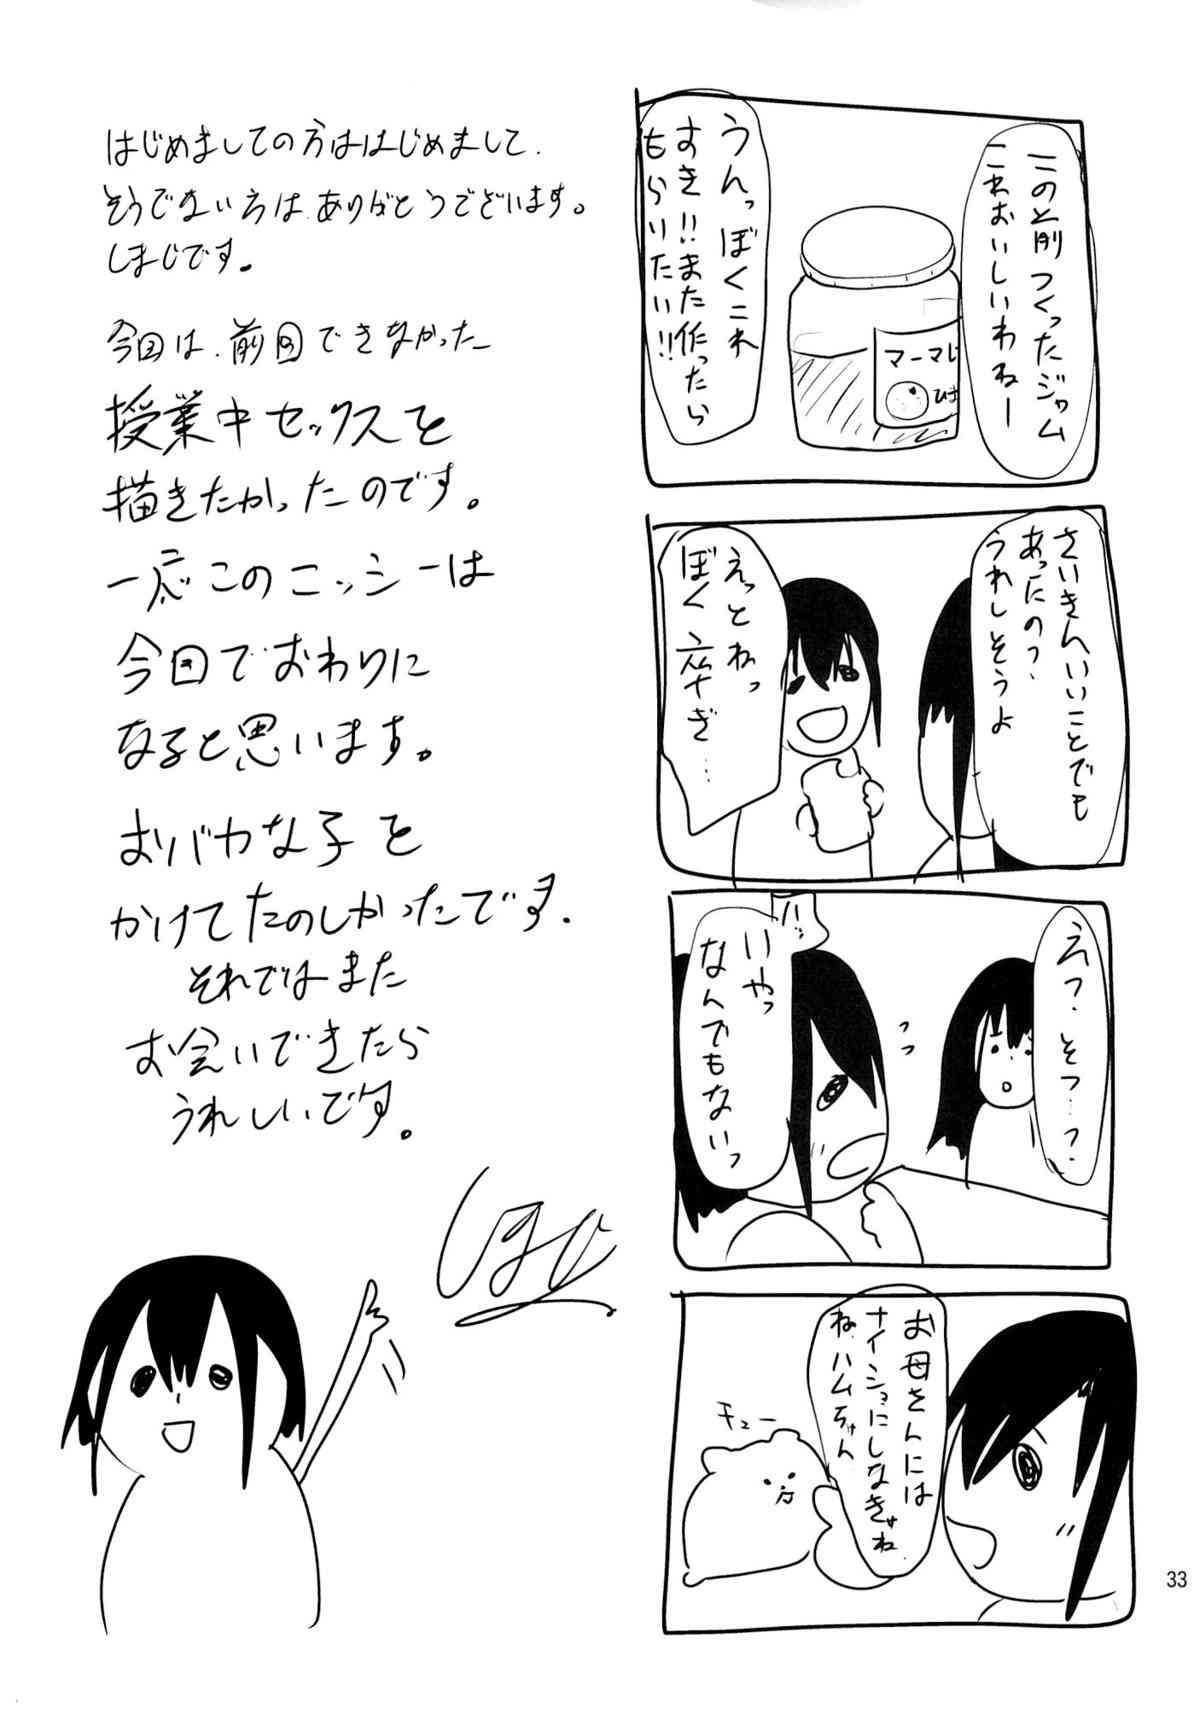 この前つくったジャム
これおいしいわねー
マーマレ
ひさ
うんっぼくこれ
すき!!また作ったら
もらいたい!!
さいきんいいことでも
あったの?
うれしそうよ
えっとねっ
ぼく卒ぎ…
えっ?そつ…?
っっ
ハッ
いやっ
なんでもないっ
お母さんには
ナイショにしなきゃね
ね、ハムちゃん
チュー
はじめましての方ははじめまして、
そうでない方はありがとうございます。
しまじです。
今回は、前回できなかった
授業中セックスを
描きたかったのです。
一応このニッシーは
今回でおわりに
なると思います。
おバカな子を
かけてたのしかったです。
それではまた
お会いできたら
うれしいです。
しまじ
33